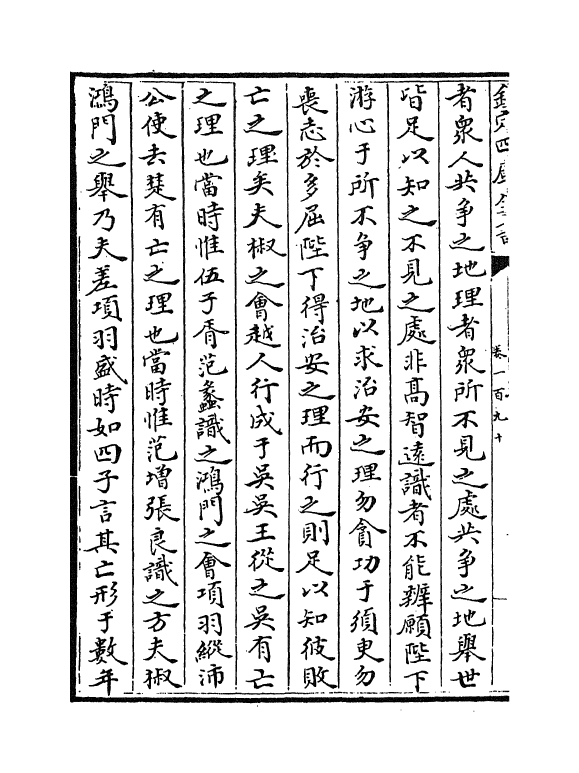 欽定四庫全書
卷一百九十
者衆人共争之地理者衆所不見之處共争之地舉世
皆足以知之不見之處非髙智遠識者不能辨願陛下
游心于所不争之地以求治安之理勿貪功于須臾勿
喪志於多屈陛下得治安之理而行之則足以知彼敗
亡之理矣夫椒之會越人行成于吳吳王從之吳有亡
之理也當時惟伍子胥范蠡識之鴻門之會項羽縱沛
公使去楚有亡之理也當時惟范增張良識之方夫椒
鴻門之舉乃夫差項羽盛時如四子言其亡形于數年